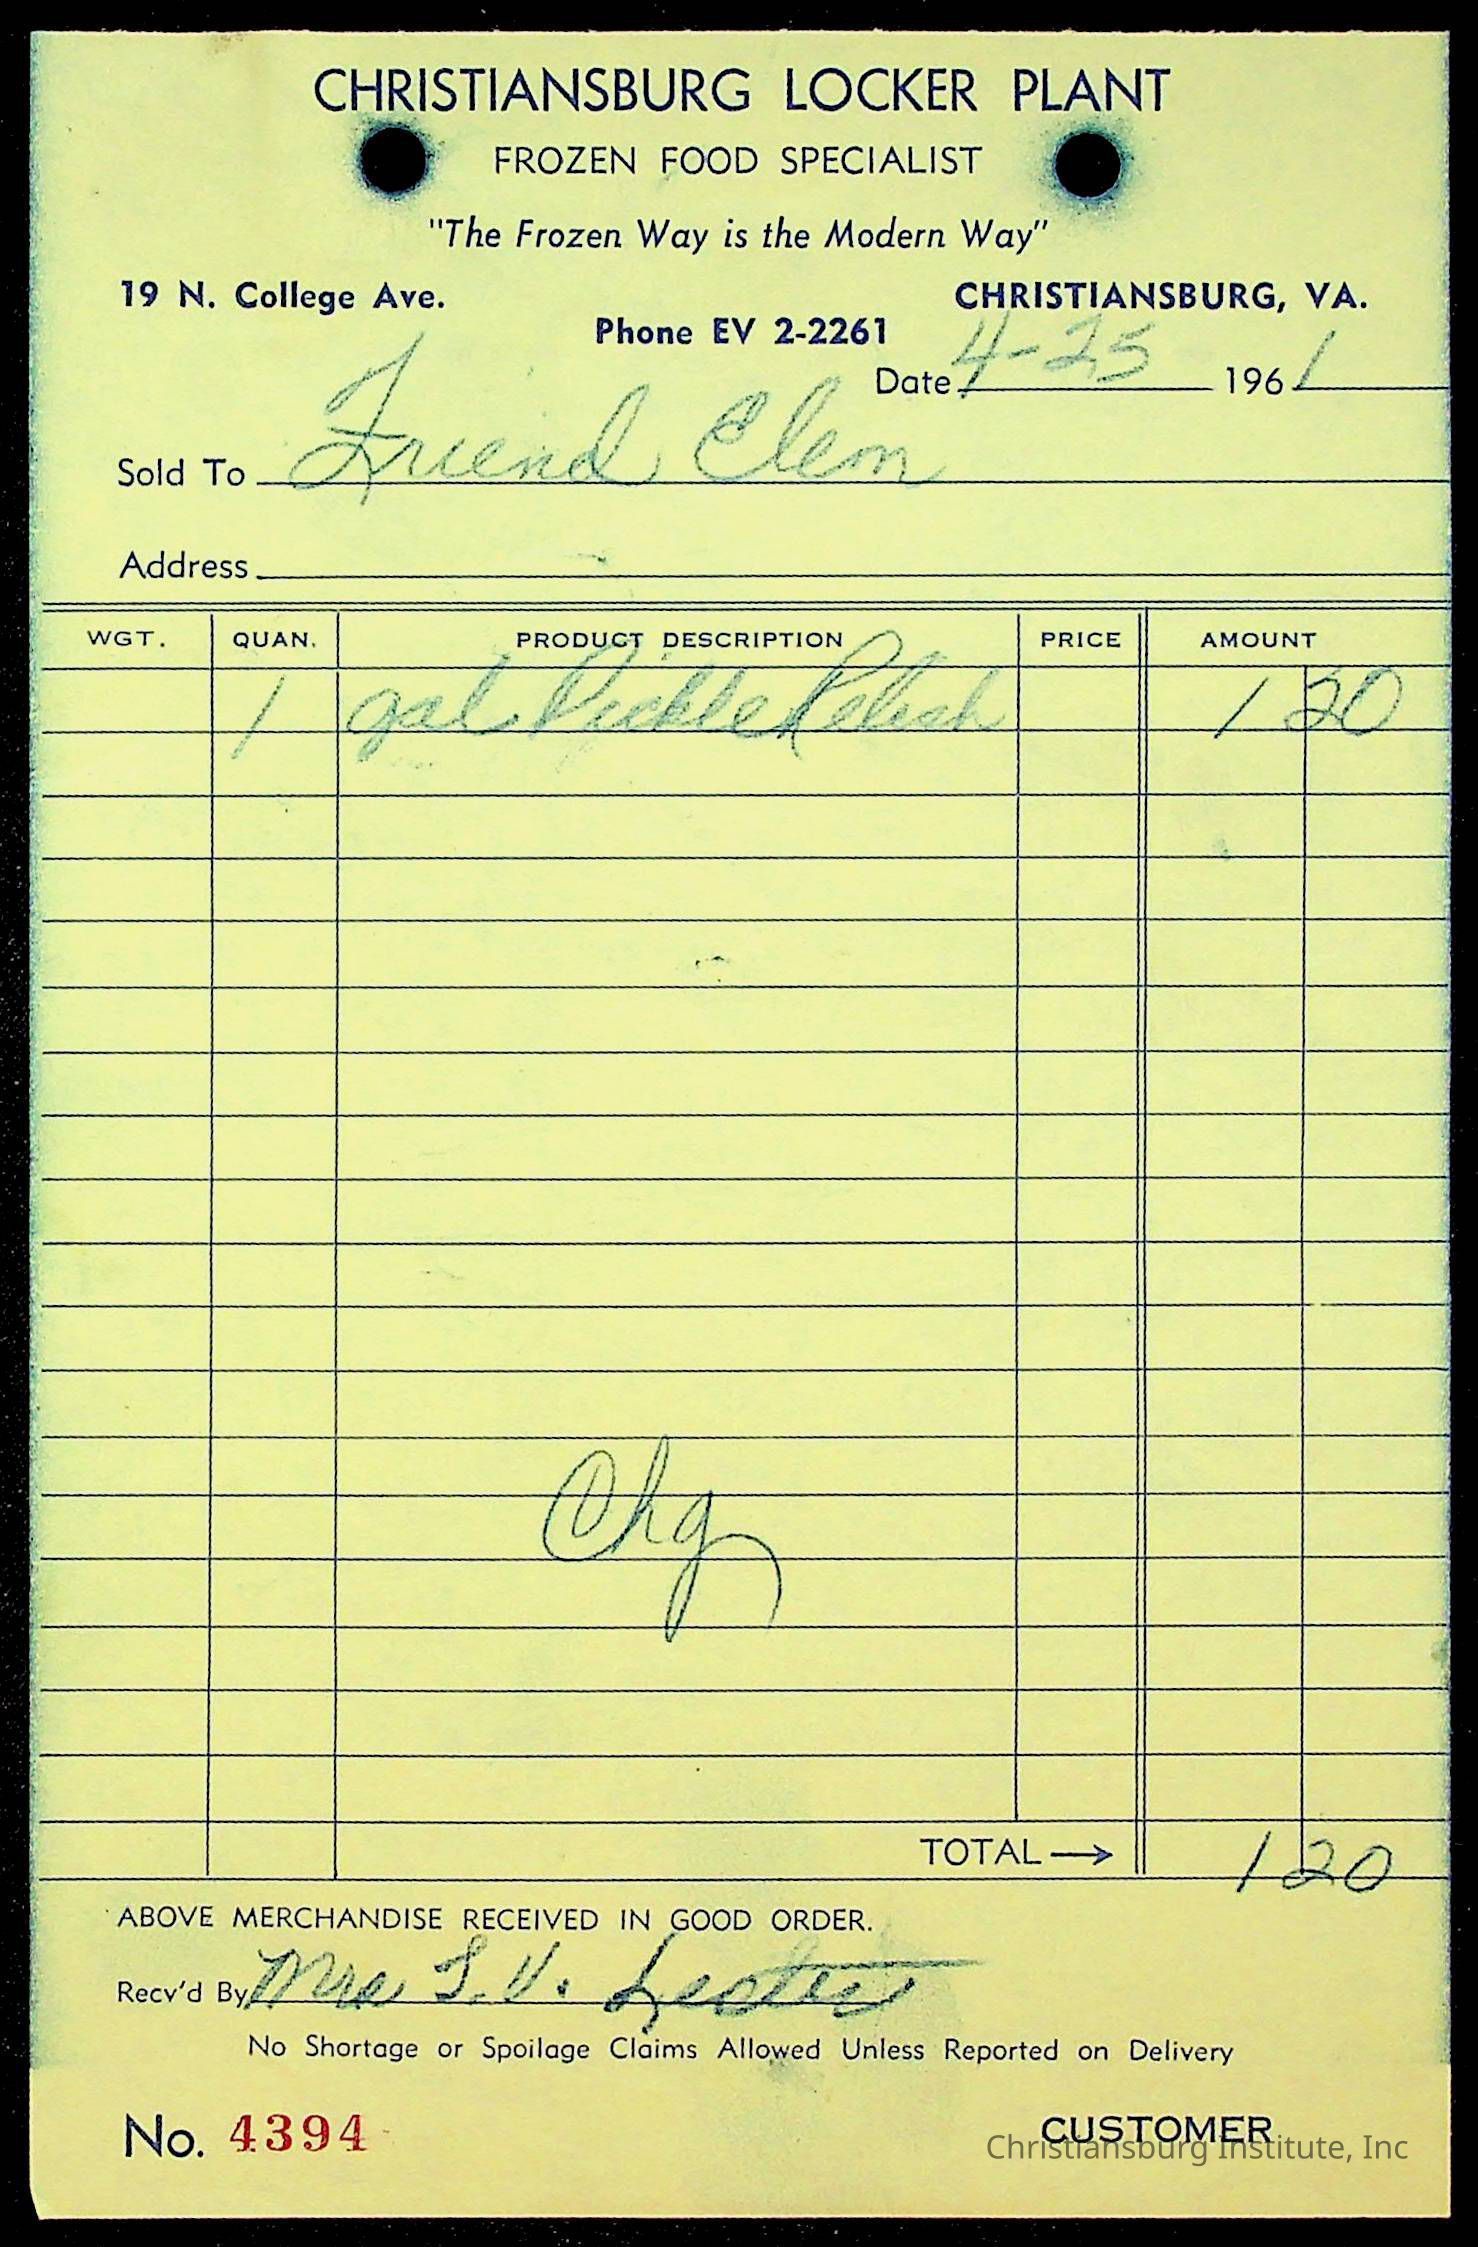 CHRISTIANSBURG LOCKER PLANT
FROZEN FOOD SPECIALIST
"The Frozen Way is the Modern Way"
19 N. College Ave. CHRISTIANSBURG, VA.
Phone EV 2-2261
Date 4-25 1961
Sold To Friend Elem
Address
WGT. QUAN. PRODUCT DESCRIPTION PRICE AMOUNT
1 gal Pickle Relish 1 20
Chg
TOTAL → 1 20
ABOVE MERCHANDISE RECEIVED IN GOOD ORDER.
Recv'd By Mrs S. V. Lester
No Shortage or Spoilage Claims Allowed Unless Reported on Delivery
No. 4394 CUSTOMER
Christiansburg Institute, Inc